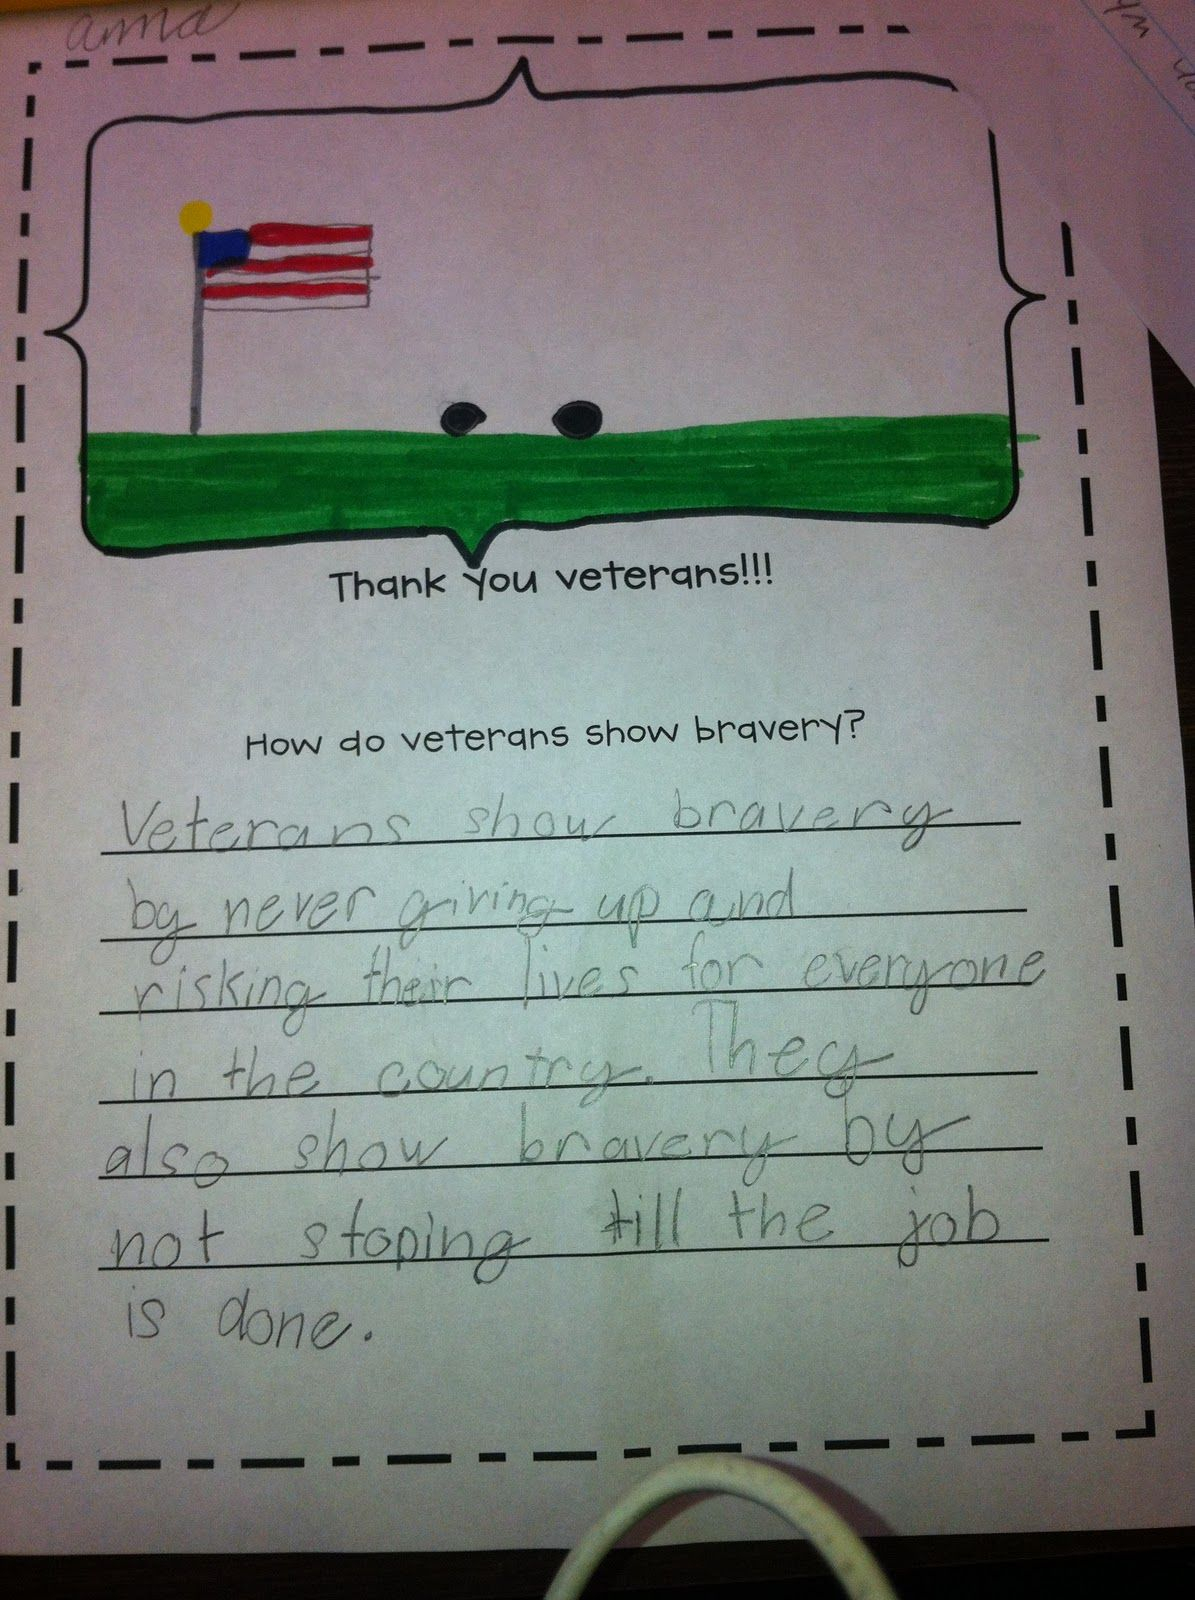 anna
Thank you veterans!!!
How do veterans show bravery?
Veterans show bravery
by never giving up and
risking their lives for everyone
in the country. They
also show bravery by
not stoping till the job
is done.